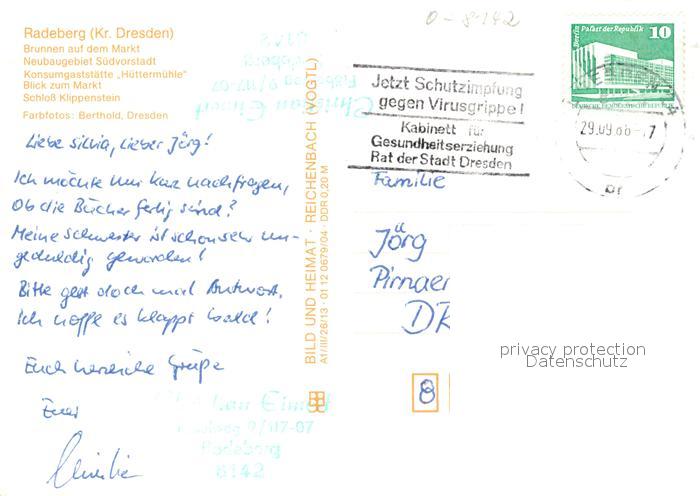 0-8142
Radeberg (Kr. Dresden)
Brunnen auf dem Markt
Neubaugebiet Südvorstadt
Konsumgaststätte „Hüttermühle"
Blick zum Markt
Schloß Klippenstein
Farbfotos: Berthold, Dresden
Liebe Silvia, lieber Jörg!
Ich möchte nur kurz nachfragen,
Ob die Bücher fertig sind?
Meine Schwester ist schon sehr un-
geduldig geworden!
Bitte gebt doch mal Antwort.
Ich hoffe es klappt bald!
Euch herzliche Grüße
Euer
Christian
BILD UND HEIMAT · REICHENBACH (VOGTL)
A1/III/26/13 · 01 12 0679/04 · DDR 0,20 M
Berlin Palast der Republik
10
Jetzt Schutzimpfung
gegen Virusgrippe!
Kabinett für
Gesundheitserziehung
Rat der Stadt Dresden
Familie
Jörg
Pirnaer
8
privacy protection
Datenschutz
9/117-07
Radeberg
8142